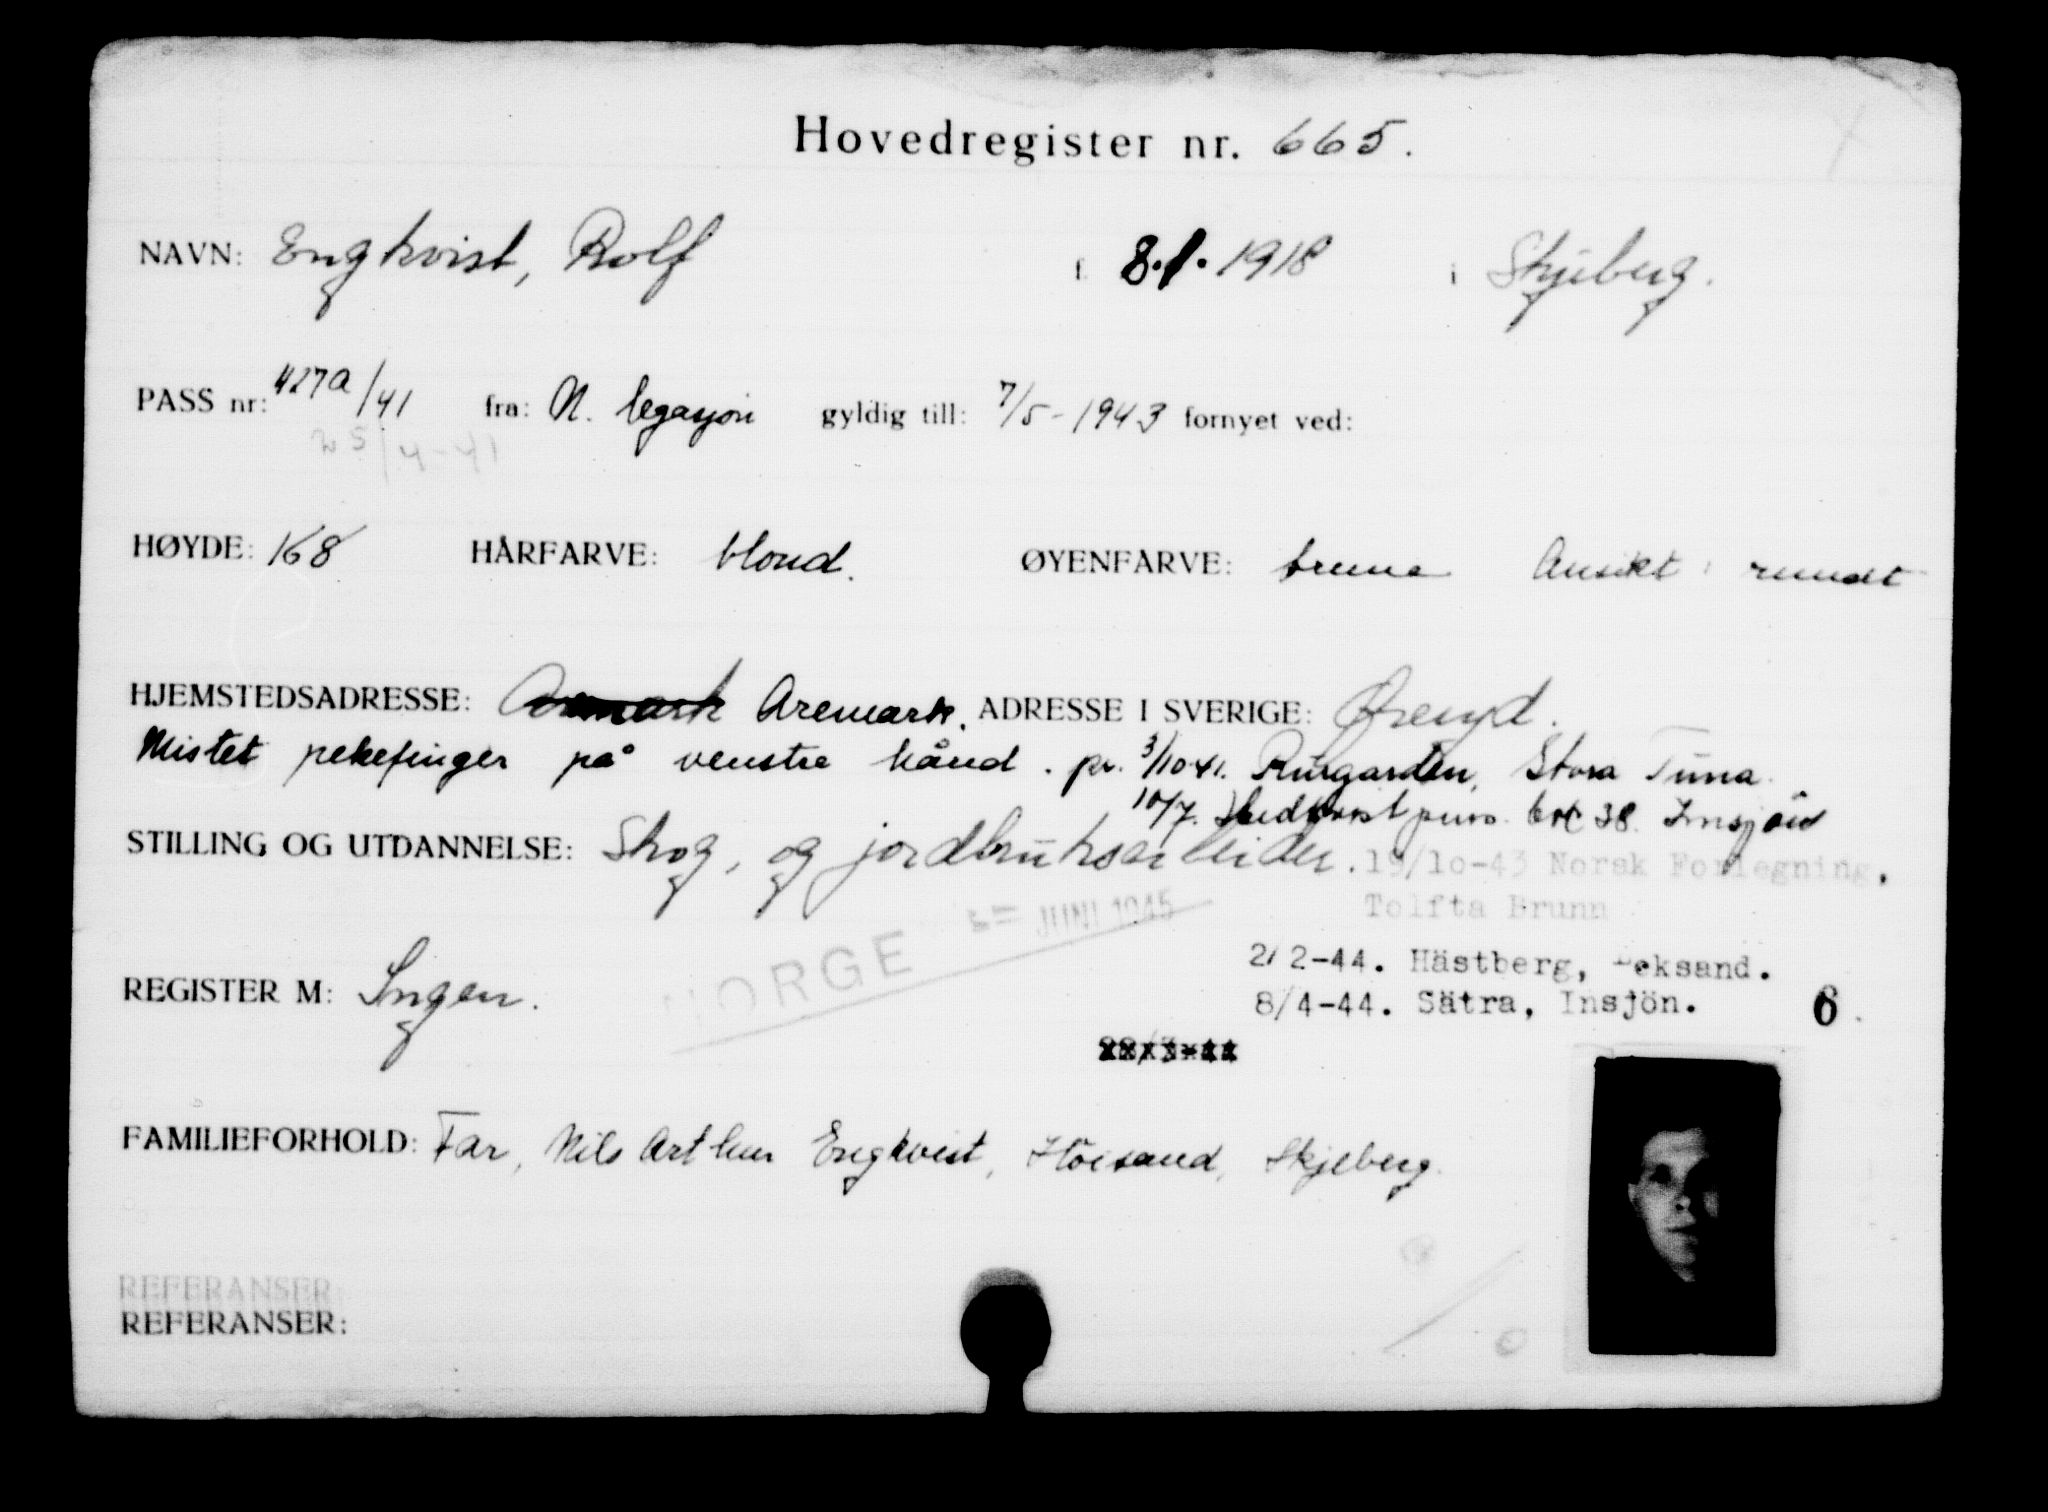 Hovedregister nr. 665.
NAVN: Engkvist, Rolf f. 8.1.1918 i Skjeberg.
PASS nr: 427a/41 fra: N. legasjon gyldig till: 7/5-1943 fornyet ved:
25/4-41
HØYDE: 168 HÅRFARVE: blond. ØYENFARVE: brune Ansikt: rundt
HJEMSTEDSADRESSE: Aremark. ADRESSE I SVERIGE: Øreryd.
Mistet pekefinger på venstre hånd. pr. 3/10 41. Stora Tuna.
10/7. 38. Insjön
STILLING OG UTDANNELSE: Skog, og jordbruksarbeider. 19/10-43 Norsk Forlegning,
Tolfta Brunn
NORGE JUNI 1945
2/2-44. Hästberg, Leksand.
REGISTER M: Ingen. 8/4-44. Sätra, Insjön. 6.
FAMILIEFORHOLD: Far, Nils Arthur Engkvist, Höisand, Skjeberg.
REFERANSER:
REFERANSER: